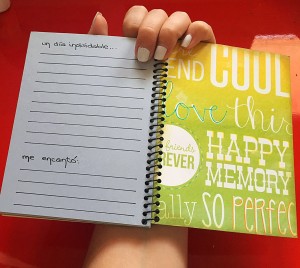 un día inolvidable...
me encantó:
END COOL
love this
friends
EVER
HAPPY
MEMORY
ally SO PERFEC